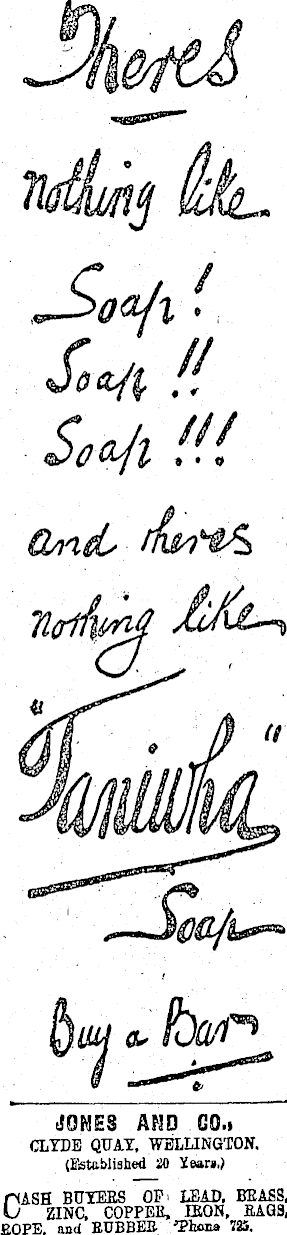 Theres
nothing like
Soap!
Soap!!
Soap!!!
and theres
nothing like
"Taniwha"
Soap
Buy a Bar
JONES AND CO.,
CLYDE QUAY, WELLINGTON.
(Established 20 Years.)
CASH BUYERS OF LEAD, BRASS,
ZINC, COPPER, IRON, RAGS,
ROPE, and RUBBER 'Phone 725.